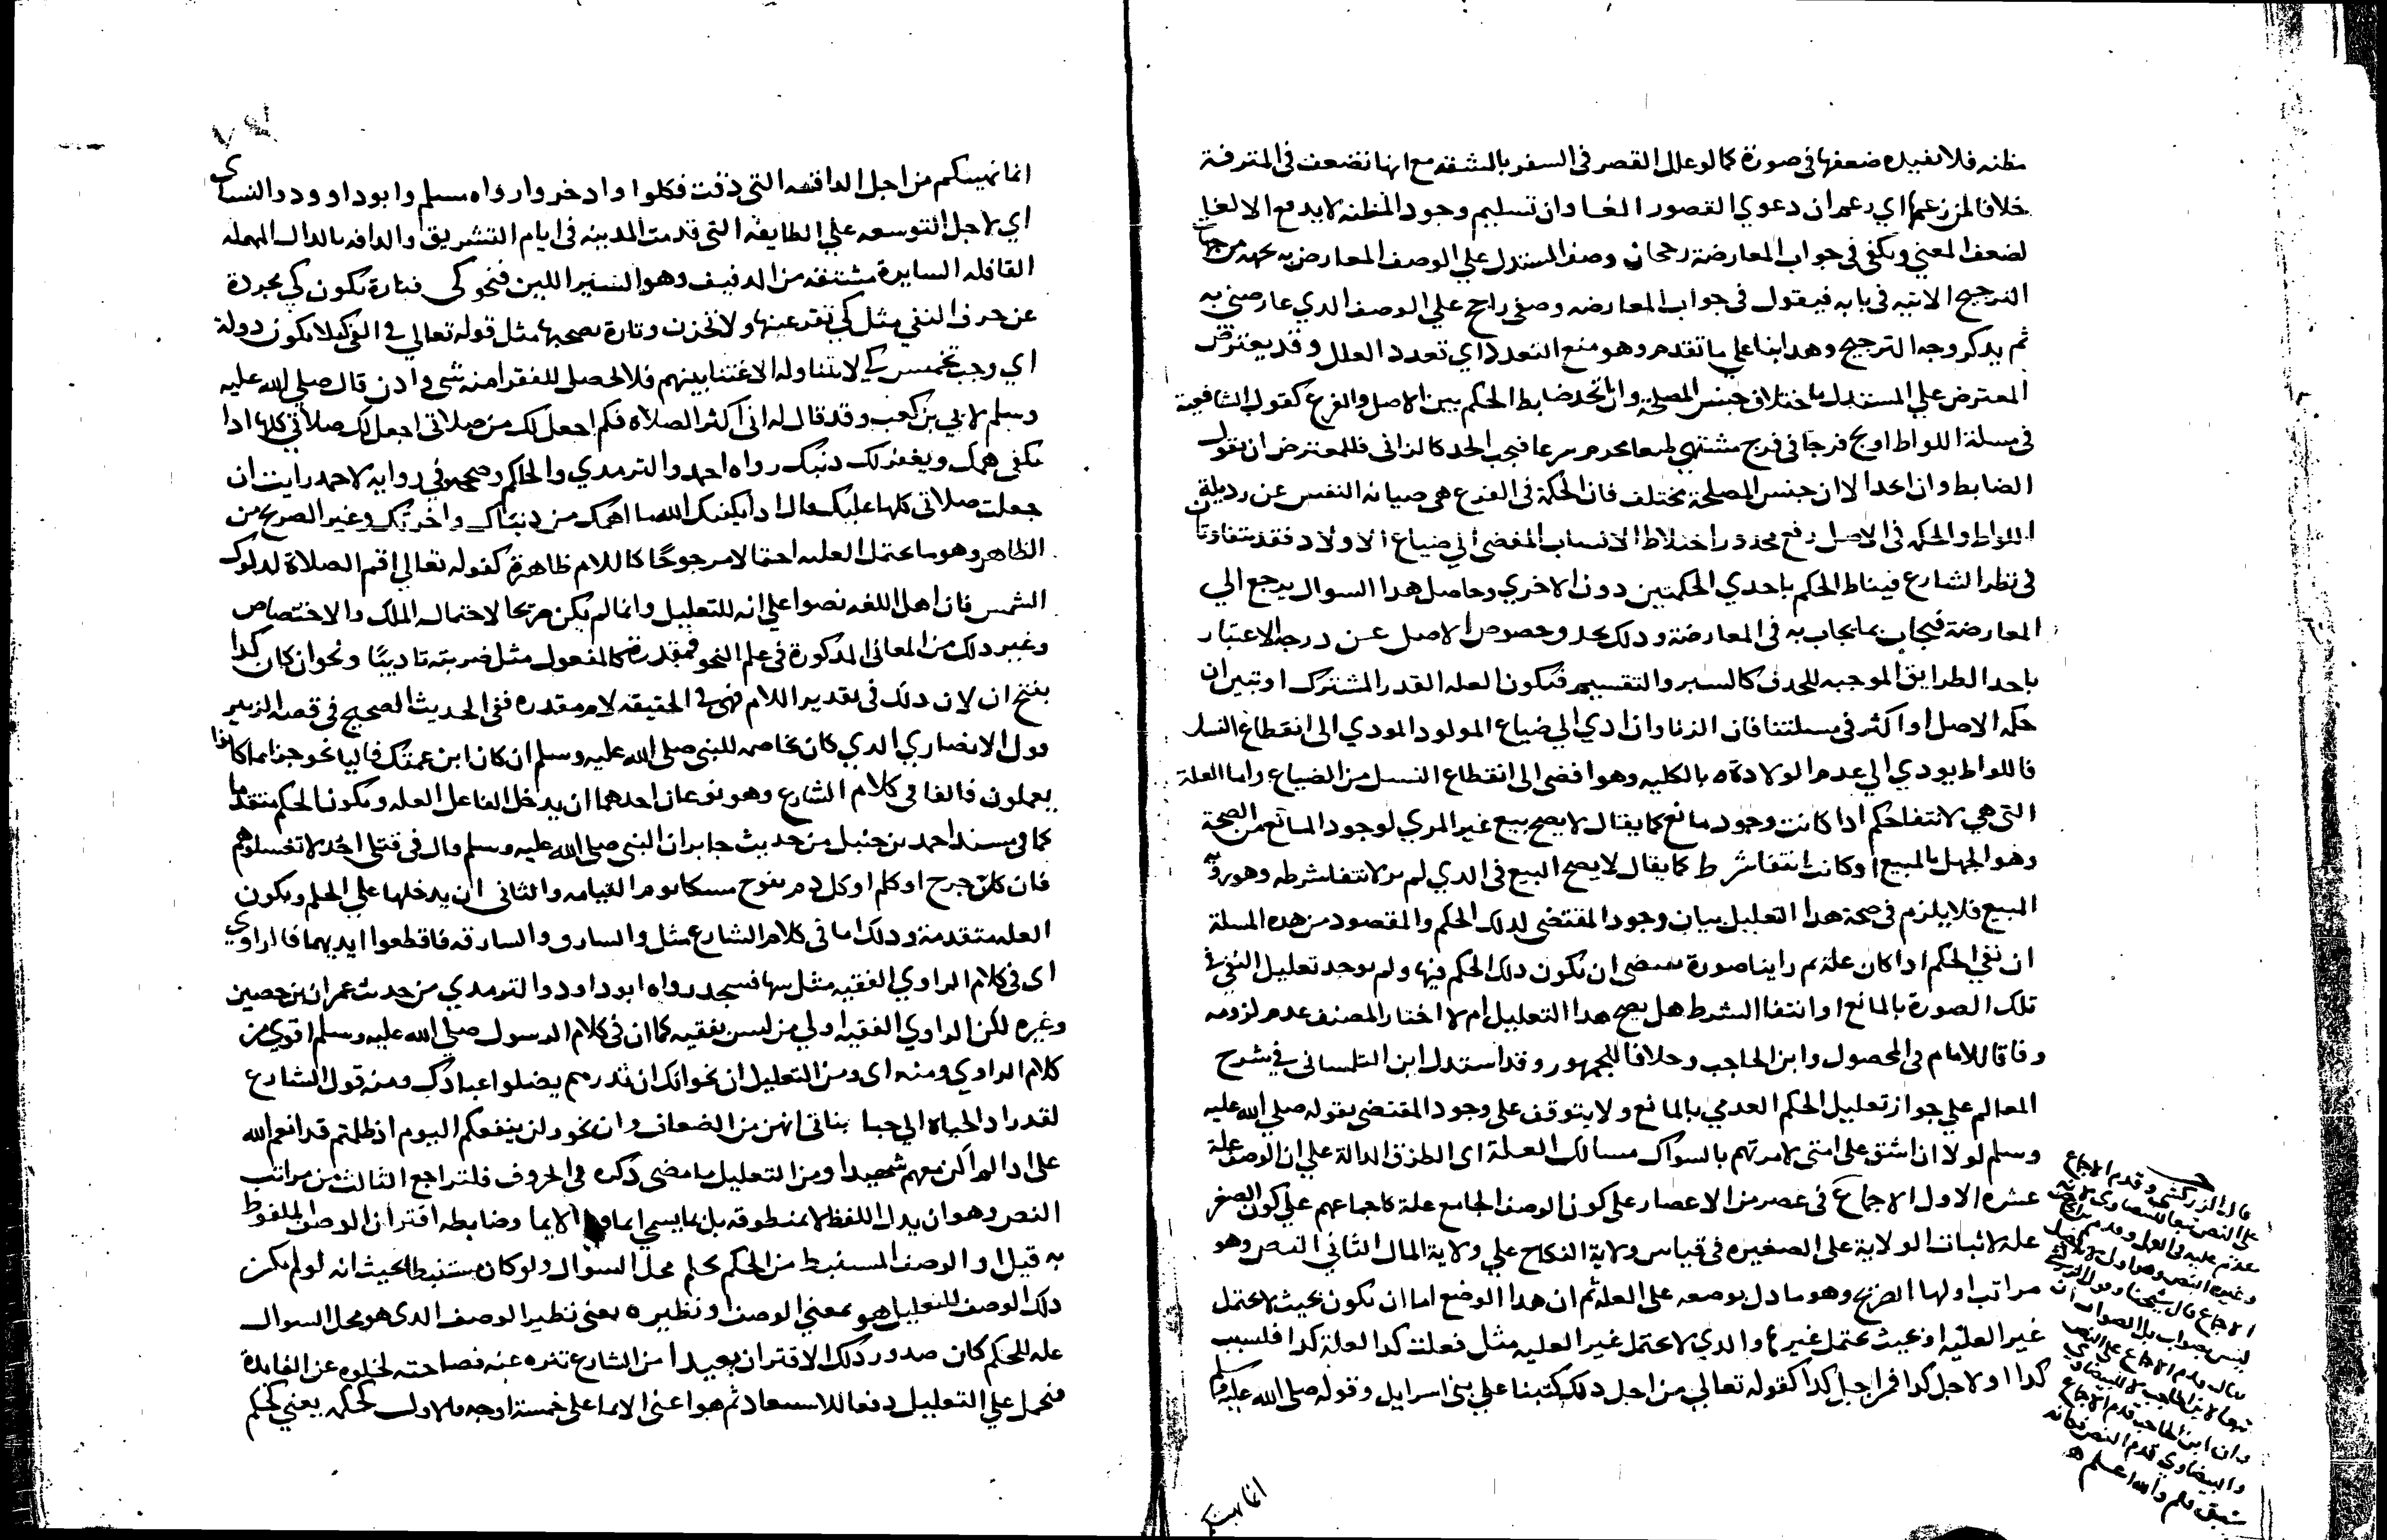 مظنه فلا يفيده ضعفها في صورة كما لو علل القصر في السفر بالمشقه مع انها تضعف في المترفة
خلافا لمن زعمها اي زعم ان دعوي القصور الغا وان تسليم وجود المظنه لا يدفع الالغا
لضعف المعني ويكفي في جواب المعارضة رجحان وصف المستدل علي الوصف المعارض به بجهه من جهات
الترجيح الاتيه في بابه فيقول في جواب المعارضه وصفي راجح علي الوصف الدي عارضني به
ثم يدكر وجه الترجيح وهدا بنا علي ما تقدم وهو منع التعدد اي تعدد العلل وقد يعترض
المعترض علي المستدل باختلاف جنس المصلحة وان اتحد ضابط الحكم بين الاصل والفرع كقول الشافعية
في مسلة اللواط اولج فرجا في فرج مشتهي طبعا محرم شرعا فيجب الحد كالزاني فللمعترض ان يقول
الضابط وان اتحد الا ان جنس المصلحة مختلف فان الحكمة في الفرع هي صيانه النفس عن رديلة
اللواط والحكمه في الاصل دفع محدور اختلاط الانساب المفضي الي ضياع الاولاد فقد يتفاوتان
في نظر الشارع فيناط الحكم باحدي الحكمتين دون الاخري وحاصل هدا السوال يرجع الي
المعارضة فيجاب بما يجاب به في المعارضة ودلك بحدف خصوص الاصل عن درجه الاعتبار
باحد الطرايق الموجبه للحدف كالسبر والتقسيم فتكون العله القدر المشترك او تبين ان
حكمه الاصل او اكثر في مسلتنا فان الزنا وان ادي الي ضياع المولود المودي الي انقطاع النسل
فاللواط يودي الي عدم الولادة ه بالكليه وهو افضي الي انقطاع النسل من الضياع واما العلة
التي هي لانتفا حكم ادا كانت وجود مانع كما يقال لا يصح بيع غير المري لوجود المانع من الصحة
وهو الجهل بالمبيع او كانت انتفا شرط كما يقال لا يصح البيع في الدي لم ير لانتفا شرطه وهو روية
المبيع فلا يلزم في صحة هدا التعليل بيان وجود المقتضي لدلك الحكم والمقصود من هده المسلة
ان نفي الحكم ادا كان علة ثم راينا صورة تقتضي ان يكون دلك الحكم فيها ولم يوجد تعليل النفي في
تلك الصورة بالمانع او انتفا الشرط هل يصح هدا التعليل ام لا اختار المصنف عدم لزومه
وفاقا للامام في المحصول وابن الحاجب وخلافا للجمهور وقد استدل ابن التلمساني في شرح
المعالم علي جواز تعليل الحكم العدمي بالمانع ولا يتوقف علي وجود المقتضي بقوله صلي الله عليه
وسلم لولا ان اشق علي امتي لامرتهم بالسواك مسالك العلة اي الطرق الدالة علي ان الوصف علة
عشره الاول الاجماع في عصر من الاعصار علي كون الوصف الجامع علة كاجماعهم علي كون الصغر
علة لاثبات الولاية علي الصغيره في قياس ولاية النكاح علي ولاية المال الثاني النص وهو
مراتب اولها الصريح وهو ما دل بوضعه علي العله ثم ان هدا الوضع اما ان يكون بحيث لا يحتمل
غير العليه او بحيث يحتمل غيرها والدي لا يحتمل غير العليه مثل فعلت كدا لعلة كدا فلسبب
كدا او لاجل كدا فمن اجل كدا كقوله تعالي من اجل دلك كتبنا علي بني اسرايل وقوله صلي الله عليه وسلم
قال الزركشي وقدم الاجماع
علي النص تبعا للبيضاوي لانه
مقدم عليه في العمل وقدم ابن الحاجب
وغيره النص وهو اولي لانه اصل
الاجماع قال شيخنا وقول الزركشي
ليس بصواب بل الصواب ان
يقال وقدم الاجماع علي النص
تبعا لابن الحاجب لا للبيضاوي
وان ابن الحاجب قدم الاجماع
والبيضاوي قدم النص فكانه
سبق قلم والله اعلم ه
انما نهيتكم
انما نهيتكم من اجل الدافه التي دفت فكلوا وادخروا رواه مسلم وابو داوود والنساي
اي لاجل التوسعه علي الطايفه التي قدمت المدينه في ايام التشريق والدافه بالدال المهمله
القافله السايرة مشتقه من الدفيف وهو السير اللين فنحو كي فتارة تكون كي مجردة
عن حرف النفي مثل كي تقر عينها ولا تحزن وتارة يصحبها مثل قوله تعالي في الفي كيلا يكون دولة
اي وجب تخميس كي لا يتناوله الاغنيا بينهم فلا يحصل للفقرا منه شي وادن قال صلي الله عليه
وسلم لابي بن كعب وقد قال له اني اكثر الصلاه فكم اجعل لك من صلاتي اجعل لك صلاتي كلها ادا
تكفي همك ويغفر لك دنبك رواه احمد والترمدي والحاكم وصححه وفي روايه لاحمد رايت ان
جعلت صلاتي كلها عليك قال ادا يكفيك الله ما اهمك من دنياك واخرتك وغير الصريح من
الظاهر وهو ما يحتمل العليه احتمالا مرجوحا كاللام ظاهرة كقوله تعالي اقم الصلاة لدلوك
الشمس فان اهل اللغه نصوا علي انه للتعليل وانما لم يكن صريحا لاحتمال الملك والاختصاص
وغير دلك من المعاني المدكورة في علم النحو فمقدرة كالمفعول مثل ضربته تاديبا ونحو ان كان كدا
بفتح ان لان دلك في تقدير اللام فهي في الحقيقه لام مقدره ففي الحديث الصحيح في قصه الزبير
قول الانصاري الدي كان يخاصمه للنبي صلي الله عليه وسلم ان كان ابن عمتك فالبا نحو جزا بما كانوا
يعملون فالفا في كلام الشارع وهو نوعان احدهما ان يدخل الفا علي العله ويكون الحكم متقدما
كما في مسند احمد بن حنبل من حديث جابر ان النبي صلي الله عليه وسلم قال في قتلي احد لا تغسلوهم
فان كل جرح او كلم او كل دم يفوح مسكا يوم القيامه والثاني ان يدخلها علي الحكم ويكون
العله متقدمة ودلك اما في كلام الشارع مثل والسارق والسارقه فاقطعوا ايديهما فالراوي
اي في كلام الراوي الفقيه مثل سها فسجد رواه ابو داود والترمدي من حديث عمران بن حصين
وغيره لكن الراوي الفقيه اولي من ليس بفقيه كما ان في كلام الرسول صلي الله عليه وسلم اقوي من
كلام الراوي ومنه اي ومن التعليل ان نحو انك ان تدرهم يضلوا عبادك ومنه قول الشارع
لقد زاد الحياه الي حبا بناتي انهن من الضعاف وان نحو ولن ينفعكم اليوم اذ ظلمتم قد انعم الله
علي اد لم اكن معهم شهيدا ومن التعليل ما مضي دكره في الحروف فلتراجع الثالث من مراتب
النص وهو ان يدل اللفظ لا بمنطوقه بل بما يسمي ايما الايما وضابطه اقتران الوصف الملفوظ
به قيل او الوصف المستنبط من الحكم بحكم محل السوال ولو كان مستنبطا بحيث انه لو لم يكن
دلك الوصف للتعليل هو بمعني الوصف او نظيره يعني نظير الوصف الدي هو محل السوال
عله للحكم كان صدور دلك الاقتران بعيدا من الشارع تنزه عنه فصاحته لخلوه عن الفايدة
فنحمل علي التعليل دفعا للاستبعاد ثم هو اعني الايما علي خمسة اوجه فالاول كحكمه يعني كحكم